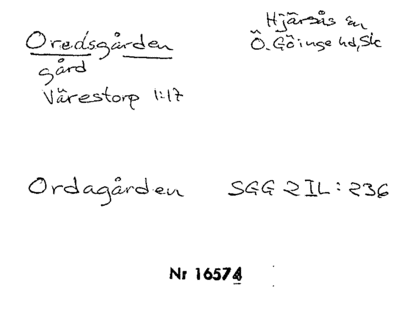 Oredsgården
gård
Värestorp 1:17
Hjärsås sn
Ö. Göinge hd, Sk
Ordagården SGG 2 IL: 236
Nr 16574